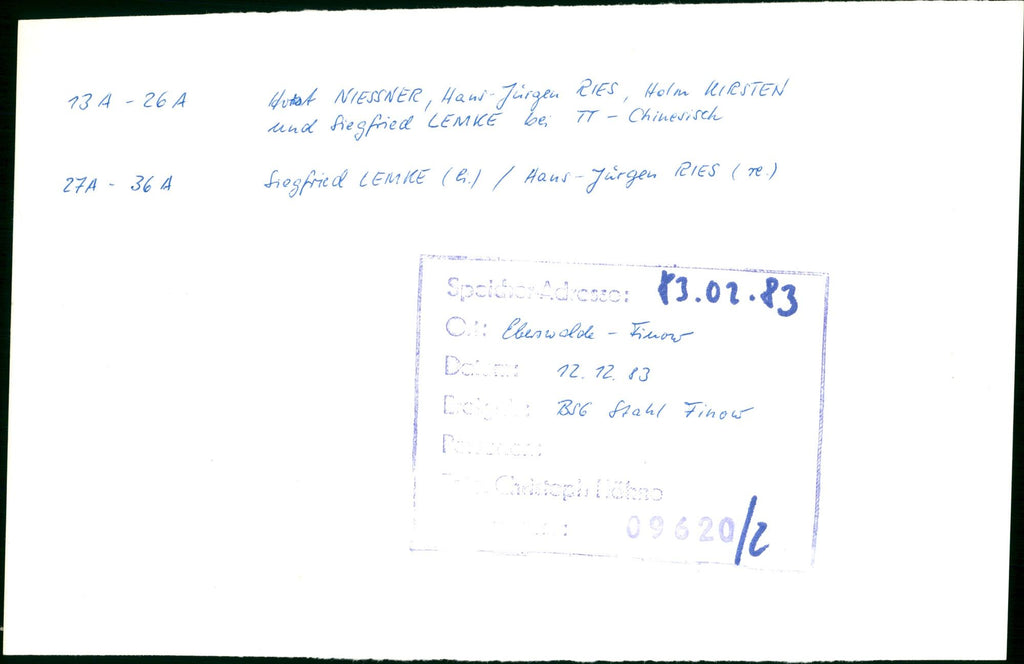 13A - 26A Horst NIESSNER, Hans-Jürgen RIES, Holm KIRSTEN
und Siegfried LEMKE bei TT - Chinesisch
27A - 36A Siegfried LEMKE (li.) / Hans-Jürgen RIES (re.)
Speicher-Adresse: 83.02.83
Ort: Eberswalde - Finow
Datum: 12.12.83
BSG Stahl Finow
Personen:
Foto: Christoph Höhne
09620/2